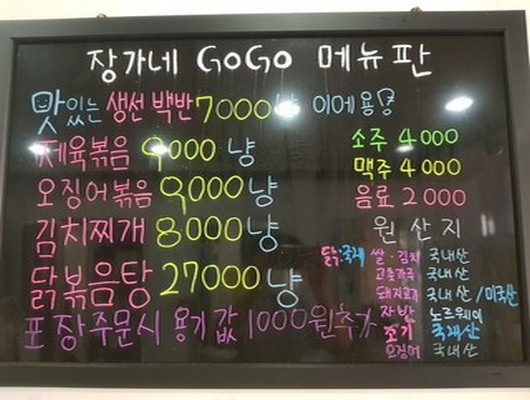 장가네 GoGo 메뉴판
맛있는 생선백반 7000냥 이에용
제육볶음 9000냥
소주 4000
맥주 4000
오징어볶음 9000냥
음료 2000
김치찌개 8000냥
원산지
닭:국내 쌀·김치 국내산
고춧가루 국내산
닭볶음탕 27000냥
돼지고기 국내산/미국산
자반 노르웨이
포장주문시 용기값 1000원추가
조기 국내산
오징어 국내산